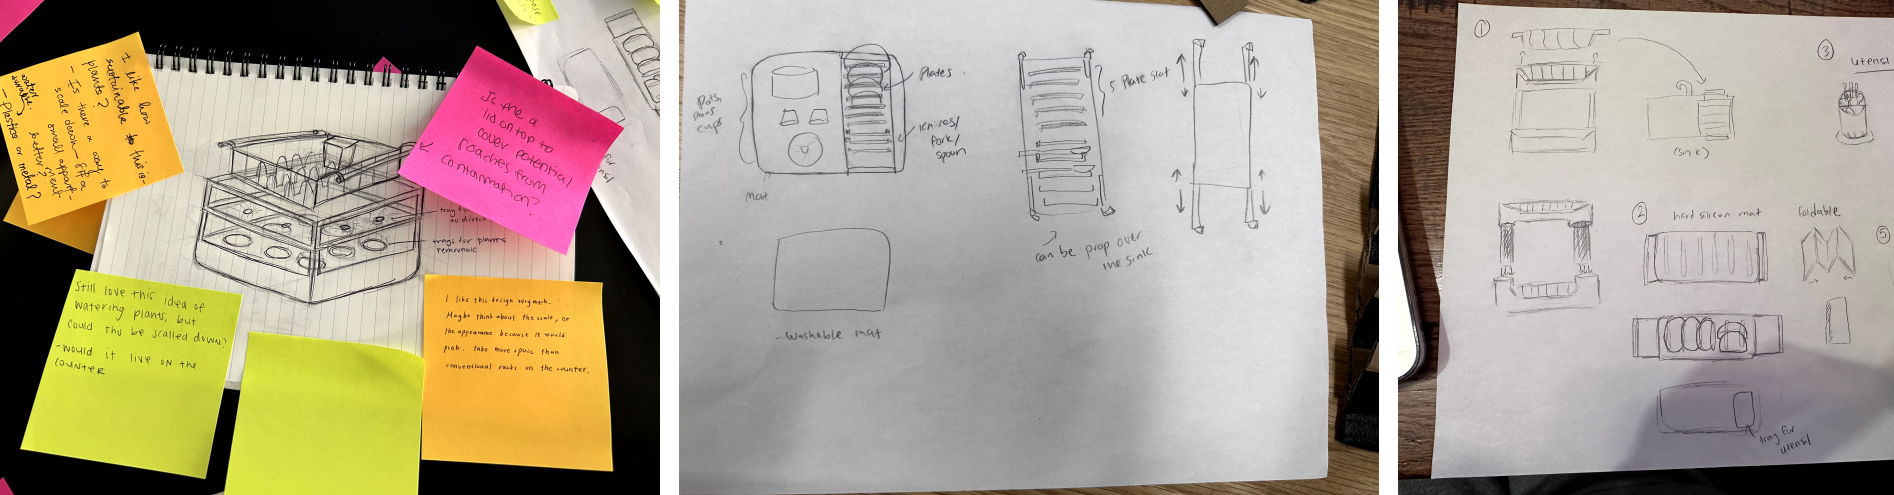 pose
I like how
sustainable to this is-
plants?
- Is there a way to
scale down - fit a
small apart-
ment
better?
water
durable.
- plastics or metal?
Is there a
lid on top to
cover potential
Roaches from
contamination?
for
tray for
to direct
trays for plants
removable
Still love this idea of
watering plants, but
could this be scalled down?
-would it live on the
counter
I like this design very much.
Maybe think about the scale, or
the appearance because it would
prob. take more space than
conventional racks on the counter.
Pots,
pans
cups
mat
Plates
knives/
fork/
spoon
-washable mat
5 Plate slot
can be prop over
the sink
1
(sink)
3
utensl
2
hard silicon mat
foldable
5
tray for
utensl